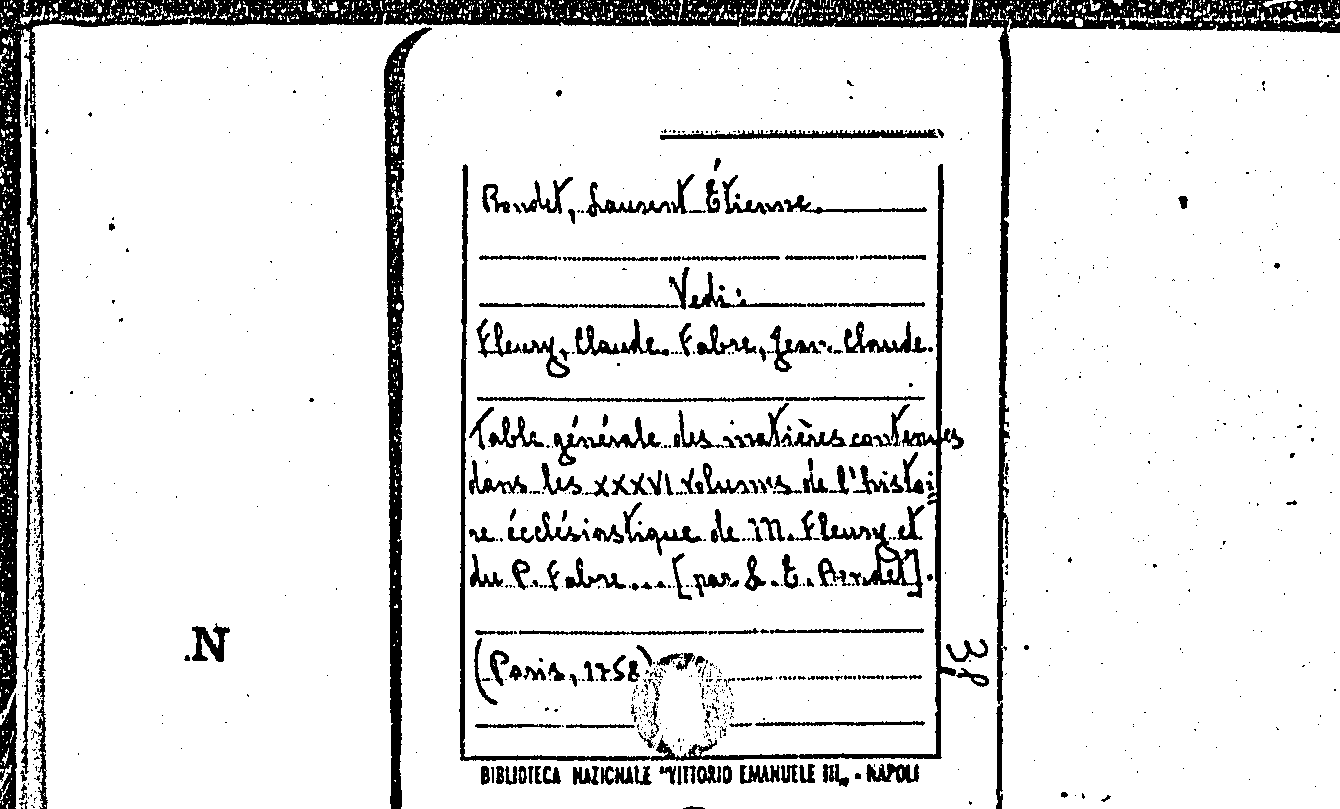 Rondet, Laurent Étienne.
Vedi:
Fleury, Claude. Fabre, Jean Claude.
Table générale des matières contenues
dans les XXXVI volumes de l'histoi
re écclésiastique de M. Fleury et
du P. Fabre... [par L. E. Rondet].
(Paris, 1758)
38
.N
BIBLIOTECA NAZIONALE "VITTORIO EMANUELE III„ - NAPOLI